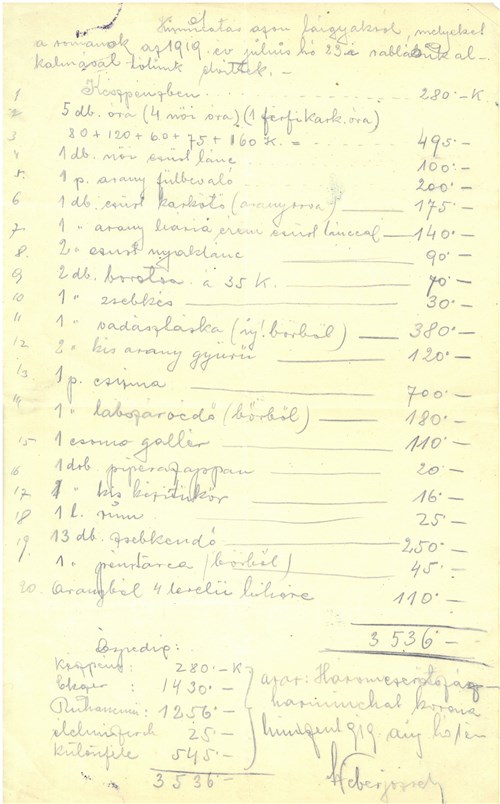 Kimutatás azon tárgyakról, melyeket
a románok az 1919. év július hó 23-i rablásuk al-
kalmával tőlünk elvittek. –
1 Készpénzben 280·– K
2 5 db. óra (4 női óra) (1 férfi kark. óra)
3 80 + 120 + 60 + 75 + 160 K. = 495·–
4 1 db. női ezüst lánc 100·–
5. 1 p. arany fülbevaló 200·–
6 1 db. ezüst karkötő (arany 175·–
7 1 " arany érem ezüst lánccal 140·–
8. 2 " ezüst nyaklánc 90·–
9 2 db. borotva a 35 K. 70·–
10 1 " zsebkés 30·–
11 1 " vadásztáska (új! bőrből) 380·–
12 2 " kis arany gyűrű 120·–
13 1 p. csizma 700·–
14 1 " lábszárvédő (bőrből) 180·–
15 1 csomó gallér 110·–
16 1 drb. pipera szappan 20·–
17 1 " kis kézitükör 16·–
18 1 l. rum 25·–
19. 13 db. zsebkendő 250·–
1 " pénztárca (bőrből) 45·–
20. Aranyból 110·–
3536·–
Éspedig:
Készpénz: 280·– K
Ékszer: 1430·–
Ruhanemü: 1256·–
élelmiszerek 25·–
különféle 545·–
3536·–
azaz: Háromezerötszáz-
harminchat korona
919. aug. hó